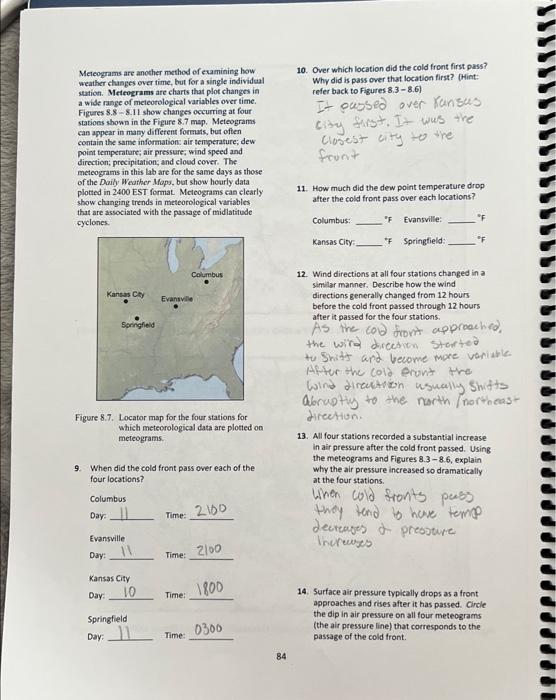 Meteograms are another method of examining how
weather changes over time, but for a single individual
station. Meteograms are charts that plot changes in
a wide range of meteorological variables over time.
Figures 8.8 – 8.11 show changes occurring at four
stations shown in the Figure 8.7 map. Meteograms
can appear in many different formats, but often
contain the same information: air temperature; dew
point temperature; air pressure; wind speed and
direction; precipitation; and cloud cover. The
meteograms in this lab are for the same days as those
of the Daily Weather Maps, but show hourly data
plotted in 2400 EST format. Meteograms can clearly
show changing trends in meteorological variables
that are associated with the passage of midlatitude
cyclones.
Columbus
Kansas City
Evansville
Springfield
Figure 8.7. Locator map for the four stations for
which meteorological data are plotted on
meteograms.
9. When did the cold front pass over each of the
four locations?
Columbus
Day: 11 Time: 2100
Evansville
Day: 11 Time: 2100
Kansas City
Day: 10 Time: 1800
Springfield
Day: 11 Time: 0300
10. Over which location did the cold front first pass?
Why did is pass over that location first? (Hint:
refer back to Figures 8.3 – 8.6)
It passed over Kansas
city first. It was the
closest city to the
front
11. How much did the dew point temperature drop
after the cold front pass over each locations?
Columbus: ____ °F Evansville: ____ °F
Kansas City: ____ °F Springfield: ____ °F
12. Wind directions at all four stations changed in a
similar manner. Describe how the wind
directions generally changed from 12 hours
before the cold front passed through 12 hours
after it passed for the four stations.
As the cold front approached,
the wind direction started
to shift and become more variable.
After the cold front the
wind direction usually shifts
abruptly to the north/northeast
direction.
13. All four stations recorded a substantial increase
in air pressure after the cold front passed. Using
the meteograms and Figures 8.3 – 8.6, explain
why the air pressure increased so dramatically
at the four stations.
When cold fronts pass
they tend to have temp
decreases & pressure
increases
14. Surface air pressure typically drops as a front
approaches and rises after it has passed. Circle
the dip in air pressure on all four meteograms
(the air pressure line) that corresponds to the
passage of the cold front.
84